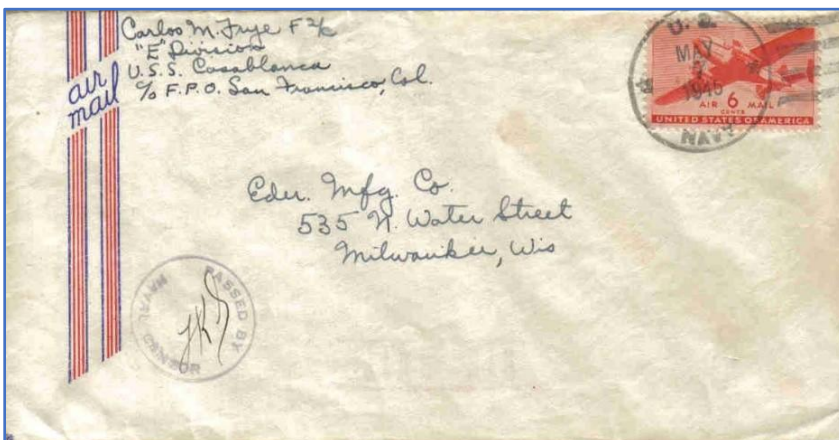 Carlos M. Frye F 2/c
"E" Division
U.S.S. Casablanca
c/o F.P.O. San Francisco, Cal.
air
mail
U. S.
MAY
7
1945
NAVY
AIR 6 MAIL
CENTS
UNITED STATES OF AMERICA
Eder. Mfg. Co.
535 N. Water Street
Milwaukee, Wis
PASSED BY
NAVAL CENSOR